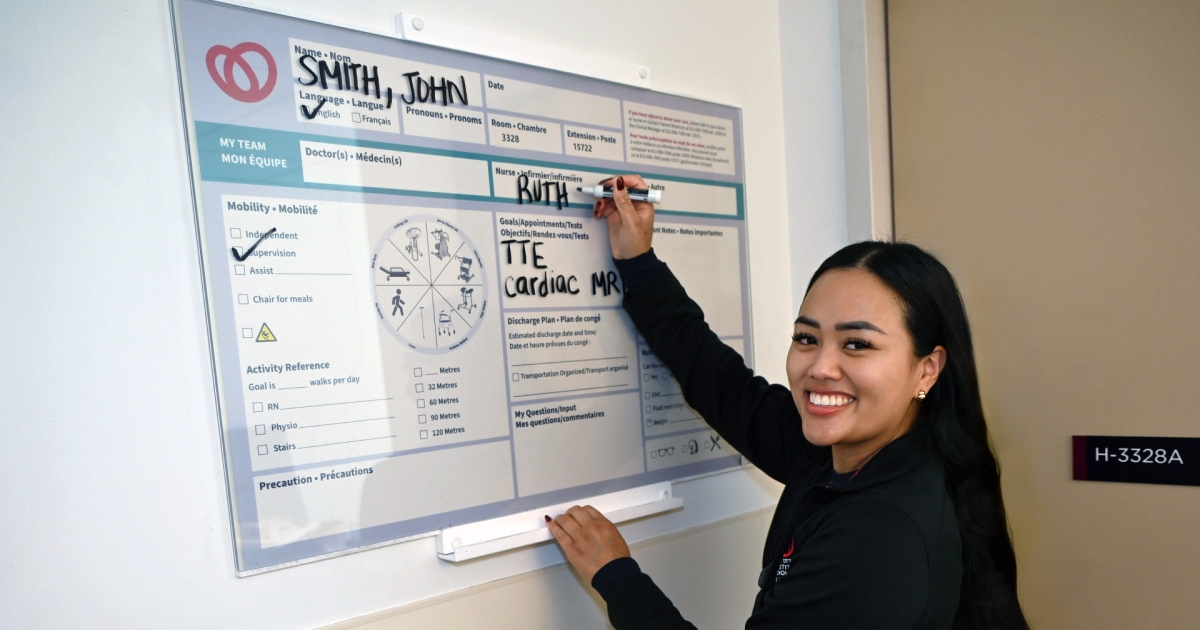 Name • Nom
SMITH, JOHN
Language • Langue
English
Français
Pronouns • Pronoms
Date
Room • Chambre
3328
Extension • Poste
15722
MY TEAM
MON ÉQUIPE
Doctor(s) • Médecin(s)
Nurse • Infirmier/infirmière
RUTH
• Autre
Mobility • Mobilité
Independent
Supervision
Assist
Chair for meals
Activity Reference
Goal is ______ walks per day
RN
Physio
Stairs
____ Metres
32 Metres
60 Metres
90 Metres
120 Metres
Precaution • Précautions
Goals/Appointments/Tests
Objectifs/Rendez-vous/Tests
TTE
cardiac MR
Discharge Plan • Plan de congé
Estimated discharge date and time/
Date et heure prévues du congé :
Transportation Organized/Transport organisé
My Questions/Input
Mes questions/commentaires
Notes • Notes importantes
H-3328A